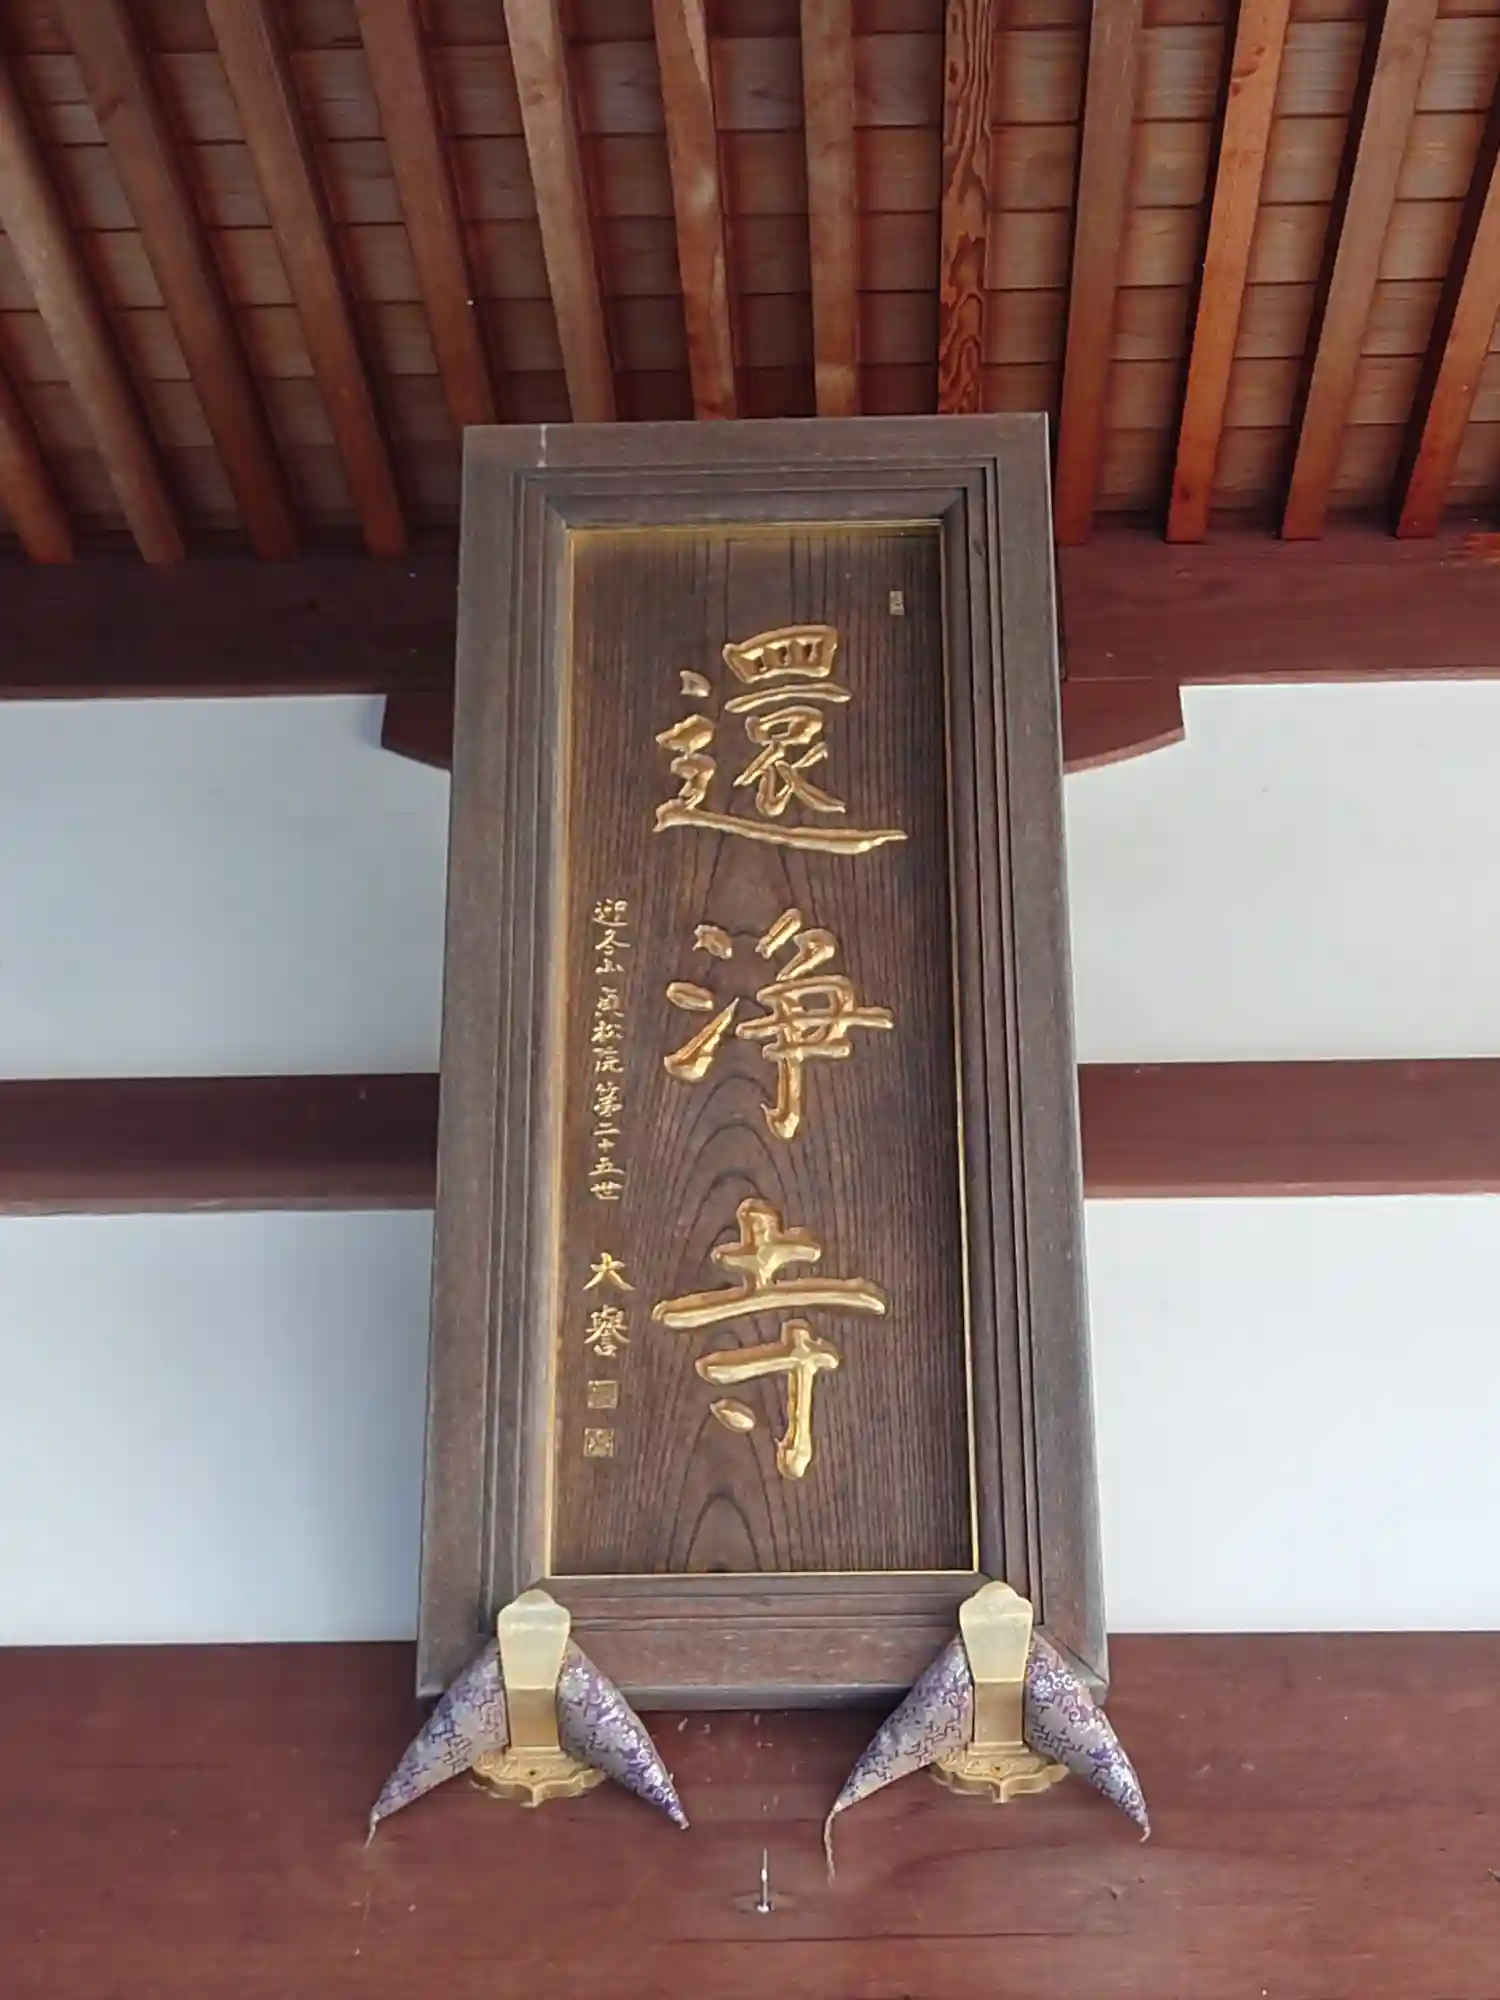 還浄寺
迎冬山貞松院第二十五世 大譽